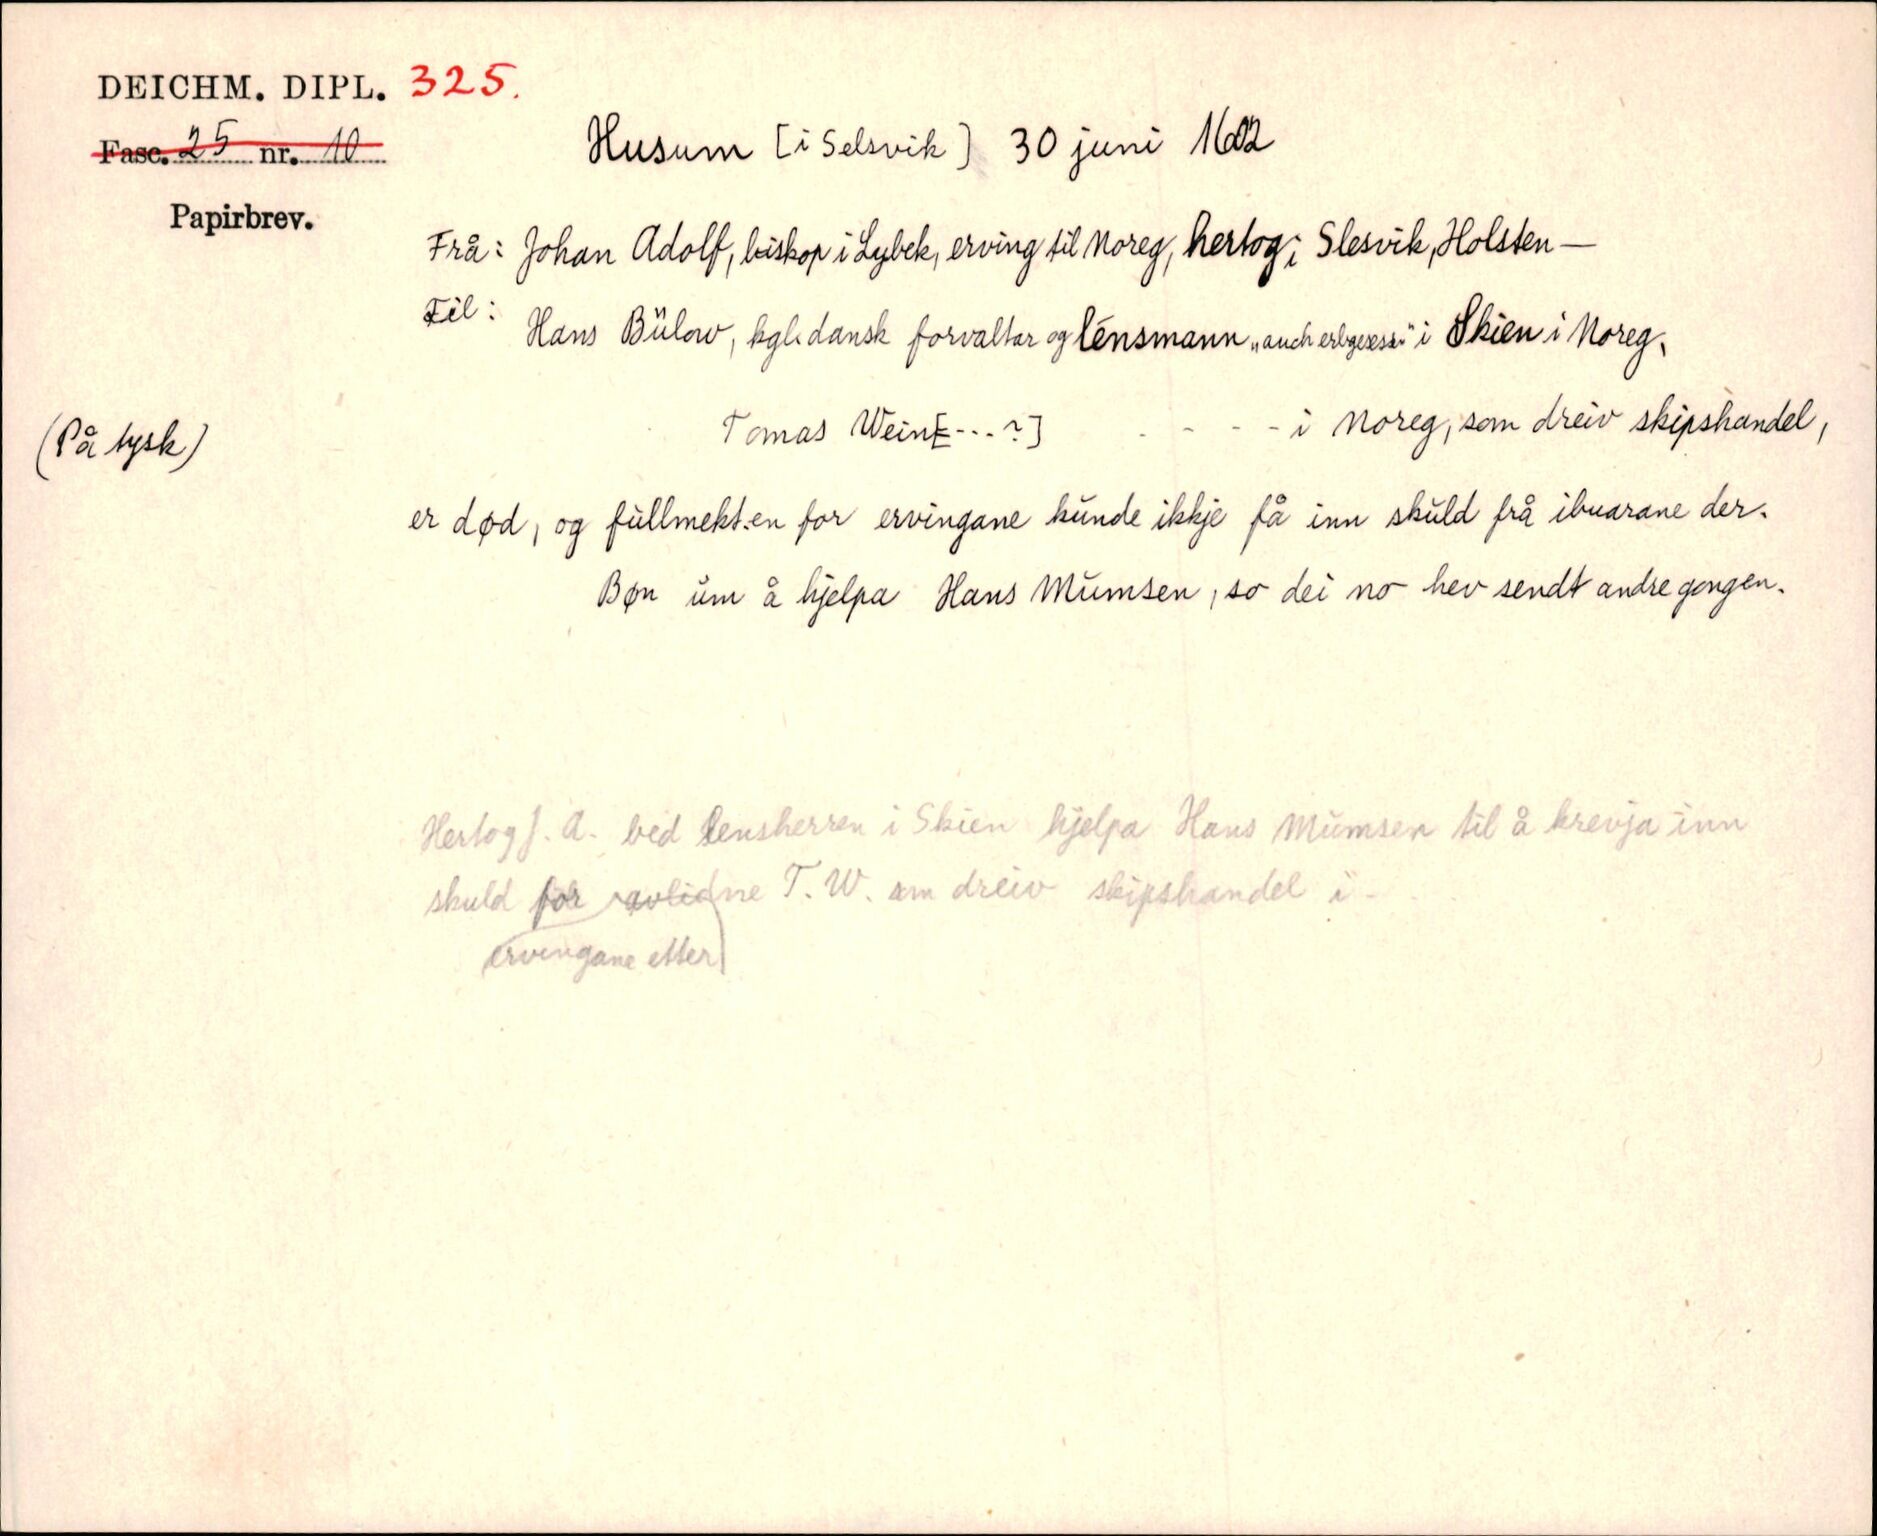 DEICHM. DIPL. 325.
Fasc. 25 nr. 10
Papirbrev.
Husum [i Selsvik] 30 juni 1602
Frå: Johan Adolf, biskop i Lybek, erving til Noreg, hertog i Slesvik, Holsten —
Til: Hans Bülow, kgl. dansk forvaltar og lénsmann „auch erbgesess." i Skien i Noreg.
(På tysk)
Tomas Wein[---?] - - - - i Noreg, som dreiv skipshandel,
er død, og fullmekt.en for ervingane kunde ikkje få inn skuld frå ibuarane der.
Bøn um å hjelpa Hans Mumsen, so dei no hev sendt andre gongen.
Hertog J. A. bed lensherren i Skien hjelpa Hans Mumsen til å krevja inn
skuld for avlidne T. W. som dreiv skipshandel i -
ervingane etter